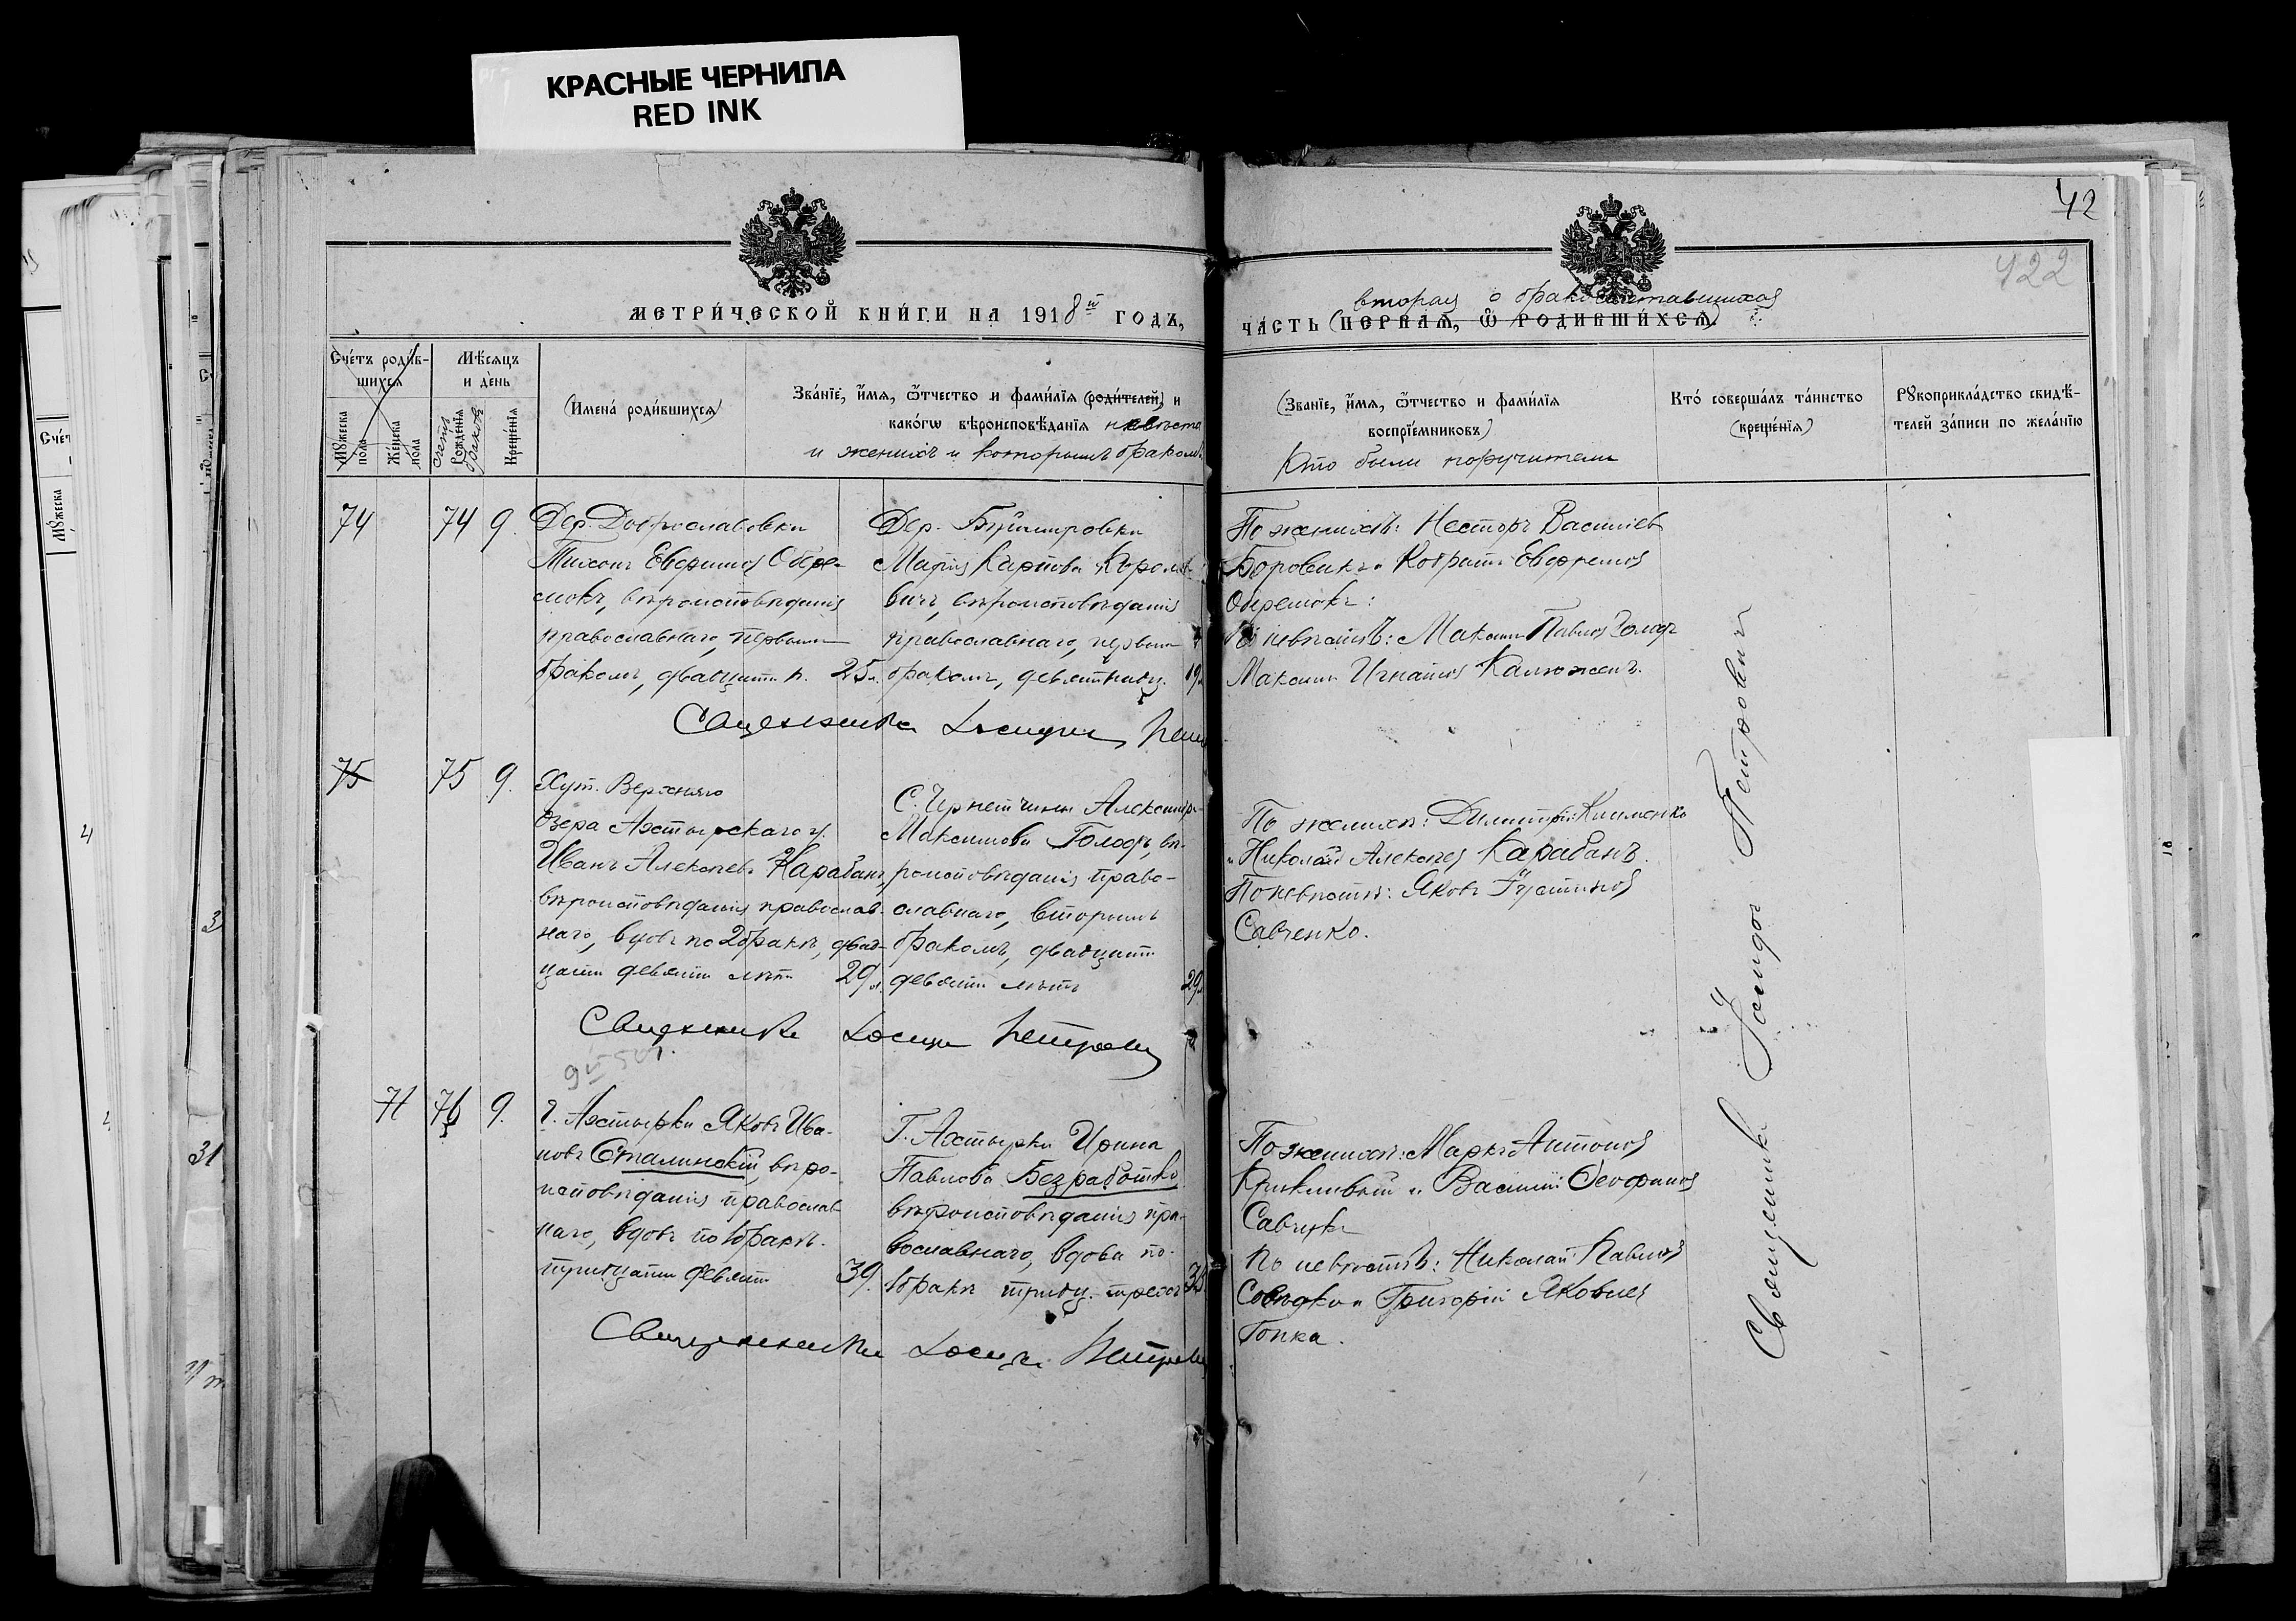 КРАСНЫЕ ЧЕРНИЛА
RED INK
42
422
МЕТРИ́ЧЕСКОЙ КНИ́ГИ НА 1918й ГОДЪ,
вторая о бракосочтавшихся
ЧА́СТЬ (ПЕРВАЯ, Ѡ РОДИВШИ́ХСЯ)
Сче́тъ роди́в-
шихся
Мꙋжеска
пола
Же́нска
пола
Мѣ́сяцъ
и де́нь
счетъ
Рожде́нія
браков
Креще́нія
(Имена́ роди́вшихся)
Зва́нїе, и́мя, ѻ́тчество и фами́лїя (роди́телей) и
како́гѡ вѣроисповѣ́данія невѣста
и женихъ и которымъ бракомъ
(Зва́нїе, и́мя, ѻ́тчество и фами́лїя
воспрїе́мниковъ)
Кто были поручители
Кто́ соверша́лъ та́инство
(креще́нїя)
Рꙋкоприкла́дство свидѣ́-
телей за́писи по жела́нїю
74
74 9.
Дер. Доброславовки
Тихонъ Евфимов
вѣроисповѣданія
православнаго, первымъ
бракомъ, двадцати п. 25 л.
Дер.
Марія Карпова
вѣроисповѣданія
православнаго, первымъ
бракомъ, девятнадц. 19
По женихѣ: Несторъ Василіев
Боровик и Кодратъ Евфремов
По невѣстѣ: Максимъ Павлов Голодъ
Максимъ Игнатов
Священникъ Іосифъ
75
75 9.
Хут. Верхняго
Озера Ахтырскаго у.
Иванъ Алексѣевъ Карабанъ,
вѣроисповѣданія православ-
наго, вдовъ по 2 бракѣ, двад-
цати девяти лѣтъ 29 л.
С. Чернетчины
Максимова Голодъ, вѣ-
роисповѣданія право-
славнаго, вторымъ
бракомъ, двадцати
девяти лѣтъ 29
По женихѣ: Димитрій Клименко
и Николай Алексѣев Карабанъ.
По невѣстѣ: Яковъ Густинов
Савченко.
Священникъ Іосифъ Петровъ
71 76 9.
г. Ахтырки Яковъ Ива-
новъ Сталинскій, вѣро-
исповѣданія православ-
наго, вдовъ по 1 бракѣ.
тридцати девяти 39.
Г. Ахтырки Ирина
Павлова Безработько,
вѣроисповѣданія пра-
вославнаго, вдова по
1 бракѣ тридц. трехъ 33
По женихѣ: Маркъ Антонов
Крикливый и Василій Феофанов
Савчукъ
По невѣстѣ: Николай Павлов
и Григорій Яковлев
Гопка.
Священникъ Іосифъ Петров
Священникъ Іосифъ Петровъ